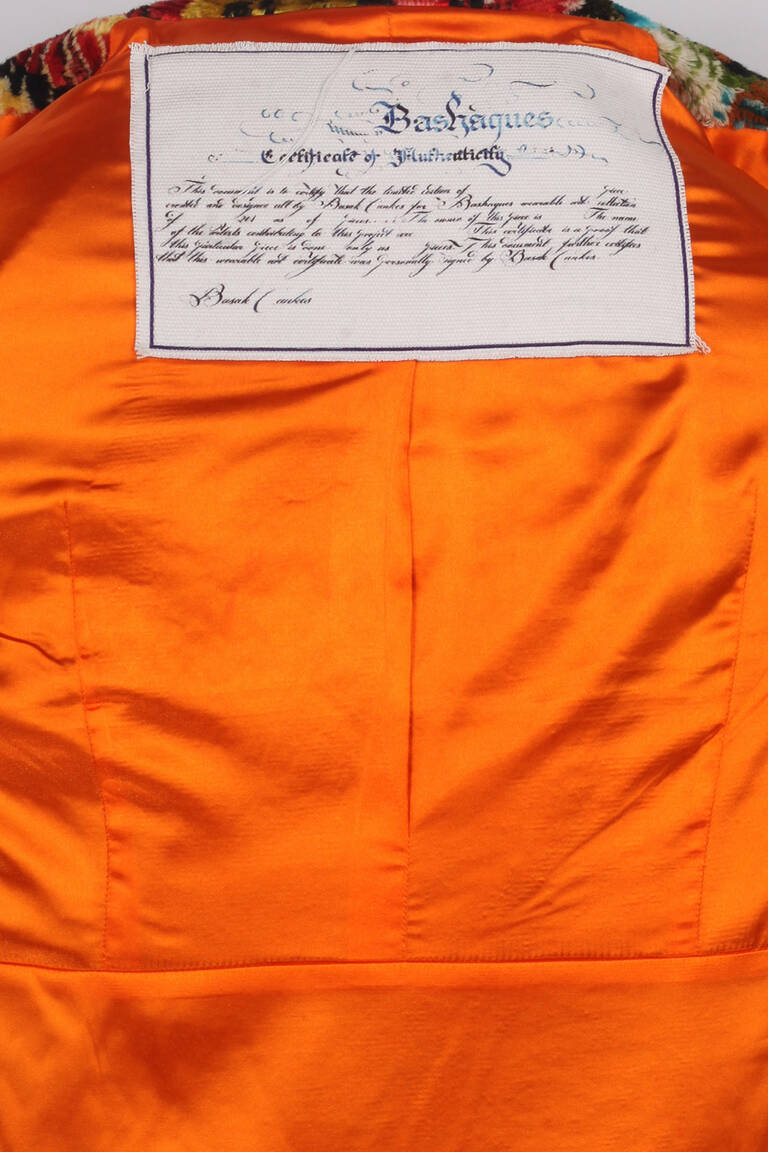 Bashaques
Certificate of Authenticity
This document is to certify that the limited Edition of piece
created and designed all by Basak Cankes for Bashaques wearable art collection
of 201 as of pieces. The name of this piece is The name
of the Artists contributing to this project are This certificate is a proof that
this particular piece is done only as pieces. This document further certifies
that this wearable art certificate was personally signed by Basak Cankes.
Basak Cankes